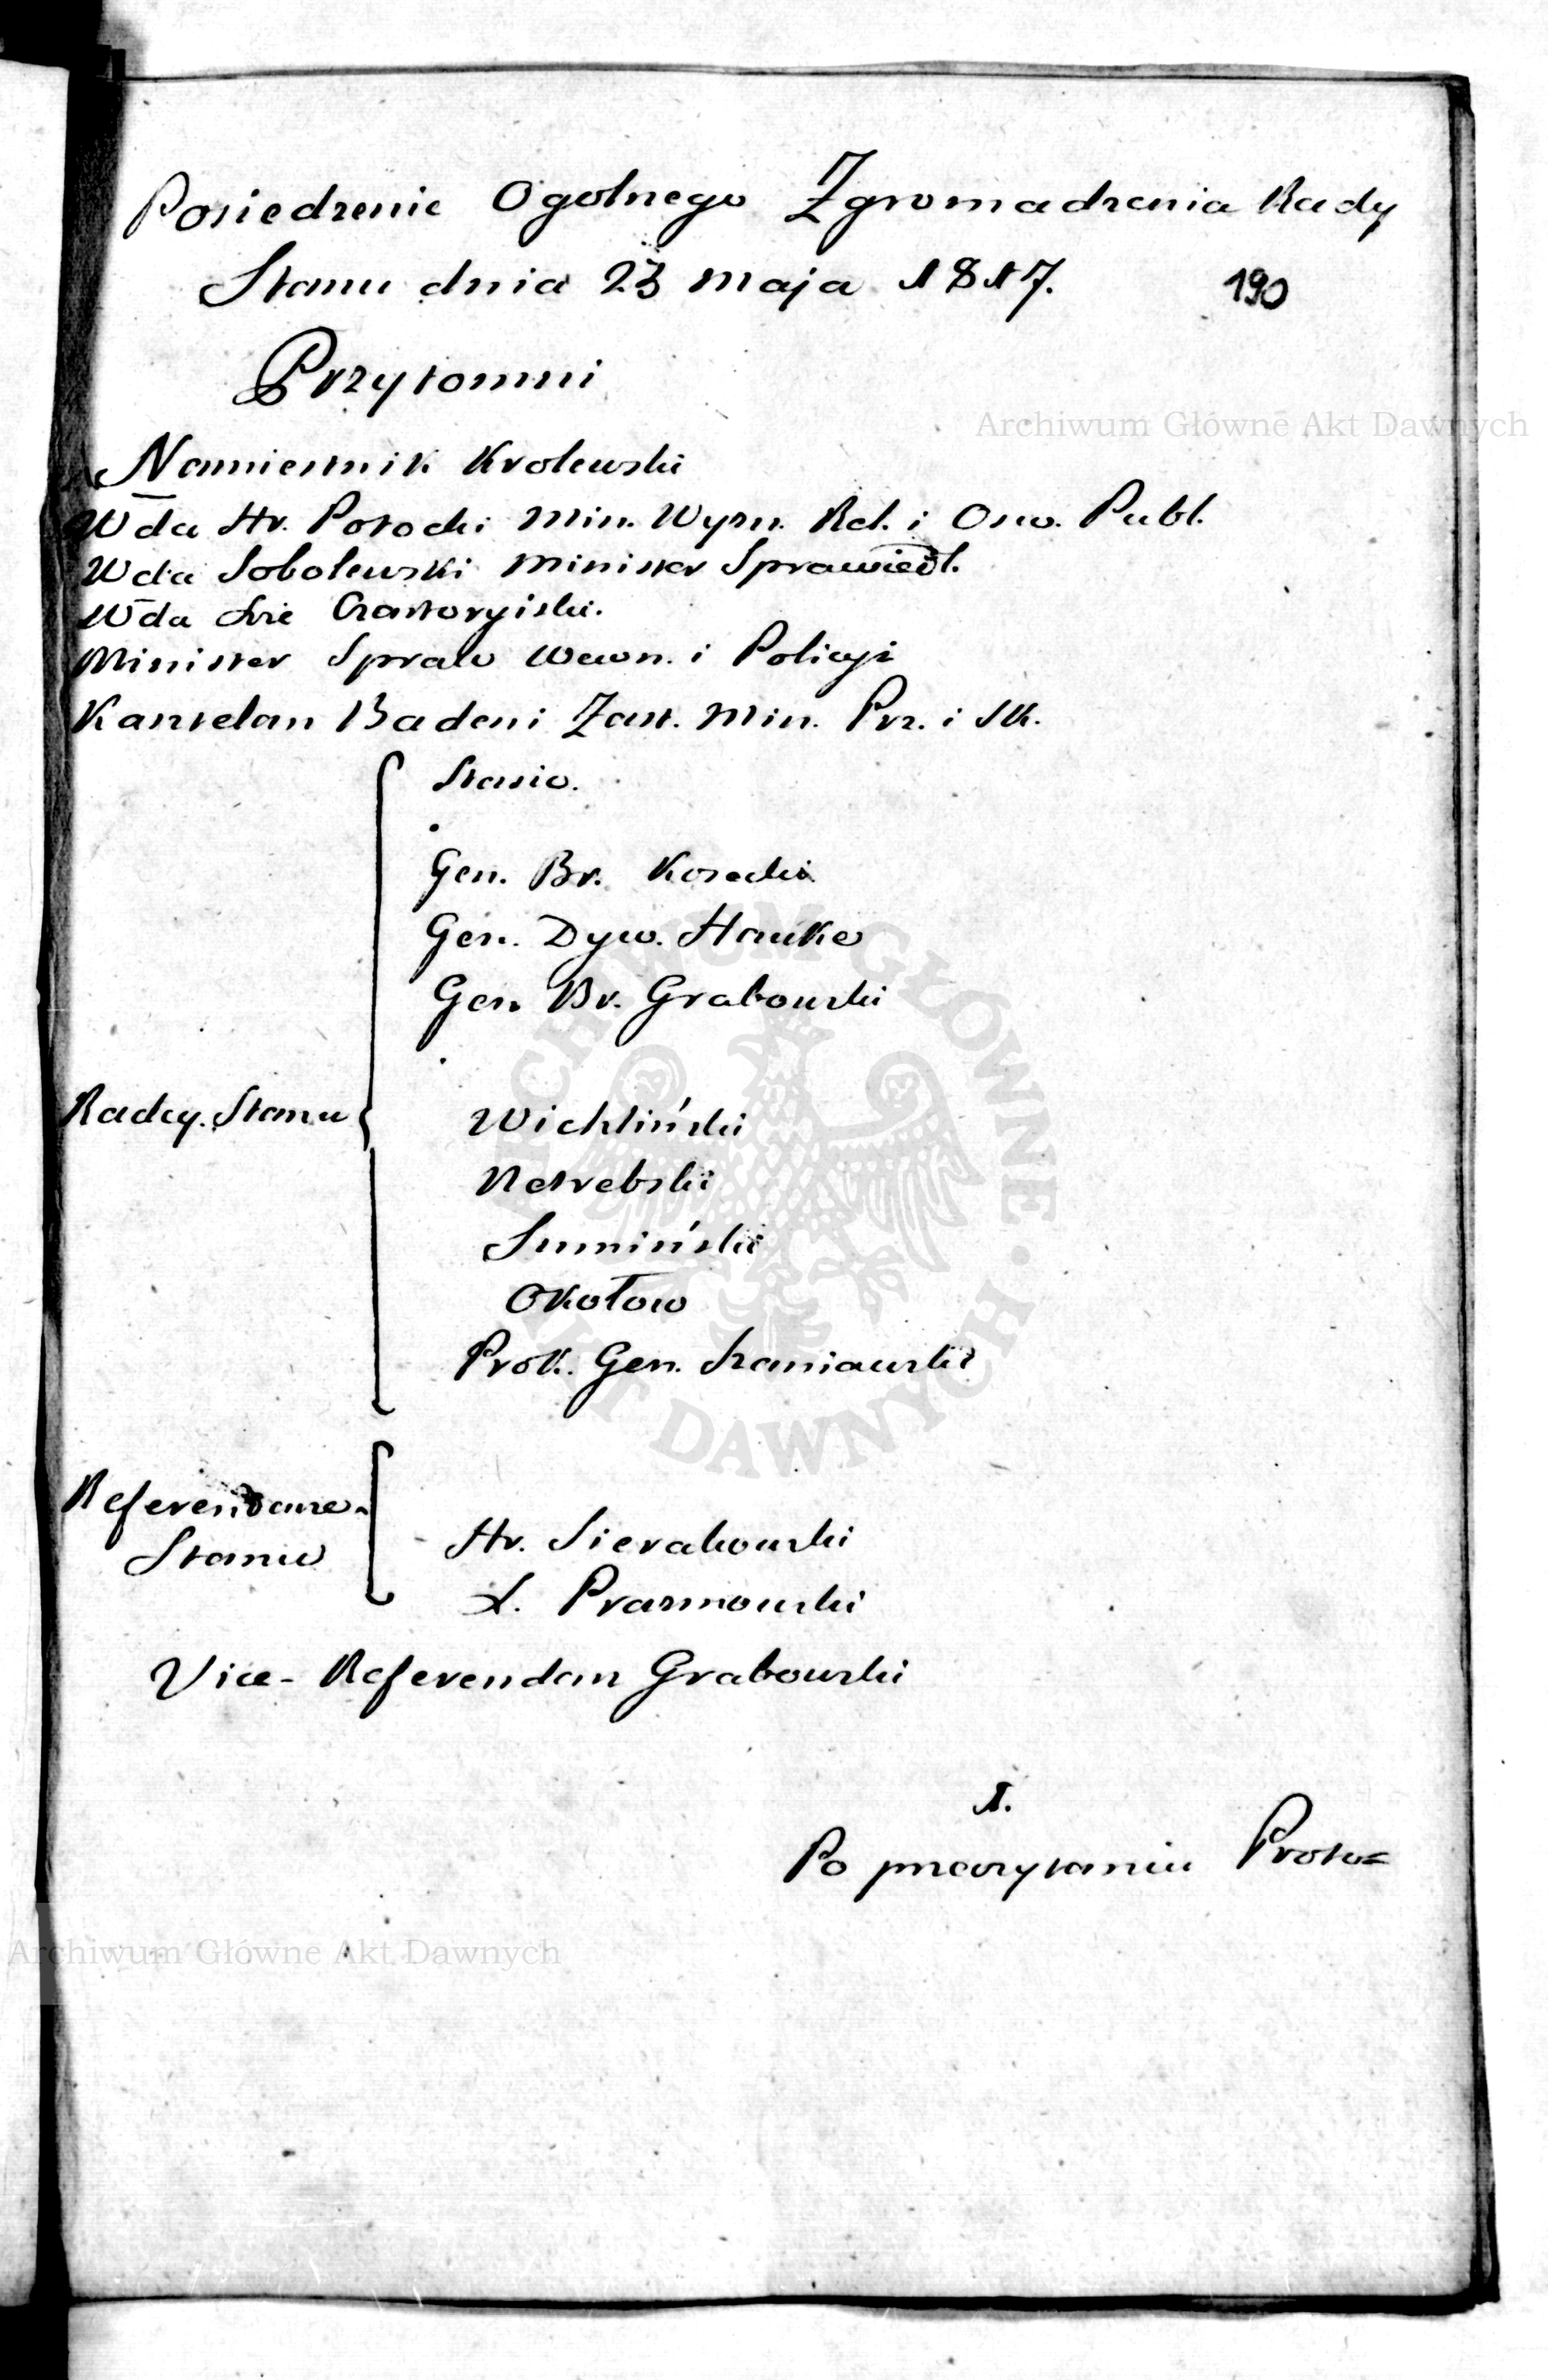 Posiedzenie Ogolnego Zgromadzenia Rady
Stanu dnia 23 maja 1817.
190
Przytomni
Archiwum Główne Akt Dawnych
Namiestnik Krolewski
Wda Hr. Potocki Min. Wyzn. Rel. i Osw. Publ.
Wda Sobolewski Minister Sprawiedl.
Wda Xże Czartoryiski.
Minister Spraw Wewn. i Policyi
Kasztelan Badeni Zast. Min. Prz. i Sk.
Stasic.
Gen. Br. Kosecki
Gen. Dyw. Hauke
Gen Br. Grabowski
Radcy Stanu
Wichliński
Netrebski
Sumiński
Okołow
Prok. Gen. Szaniawski
Referendarze
Stanu
Hr. Sierakowski
X. Prazmowski
Vice-Referendarz Grabowski
1.
Po przeczytaniu Proto=
Archiwum Główne Akt Dawnych
ARCHIWUM GŁÓWNE · AKT DAWNYCH ·